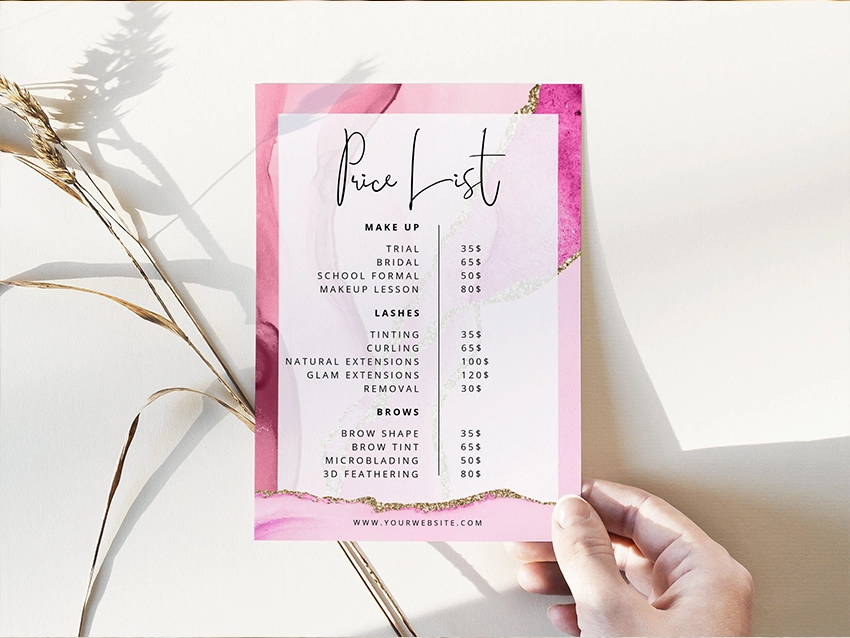 Price List
MAKE UP
TRIAL 35$
BRIDAL 65$
SCHOOL FORMAL 50$
MAKEUP LESSON 80$
LASHES
TINTING 35$
CURLING 65$
NATURAL EXTENSIONS 100$
GLAM EXTENSIONS 120$
REMOVAL 30$
BROWS
BROW SHAPE 35$
BROW TINT 65$
MICROBLADING 50$
3D FEATHERING 80$
WWW.YOURWEBSITE.COM